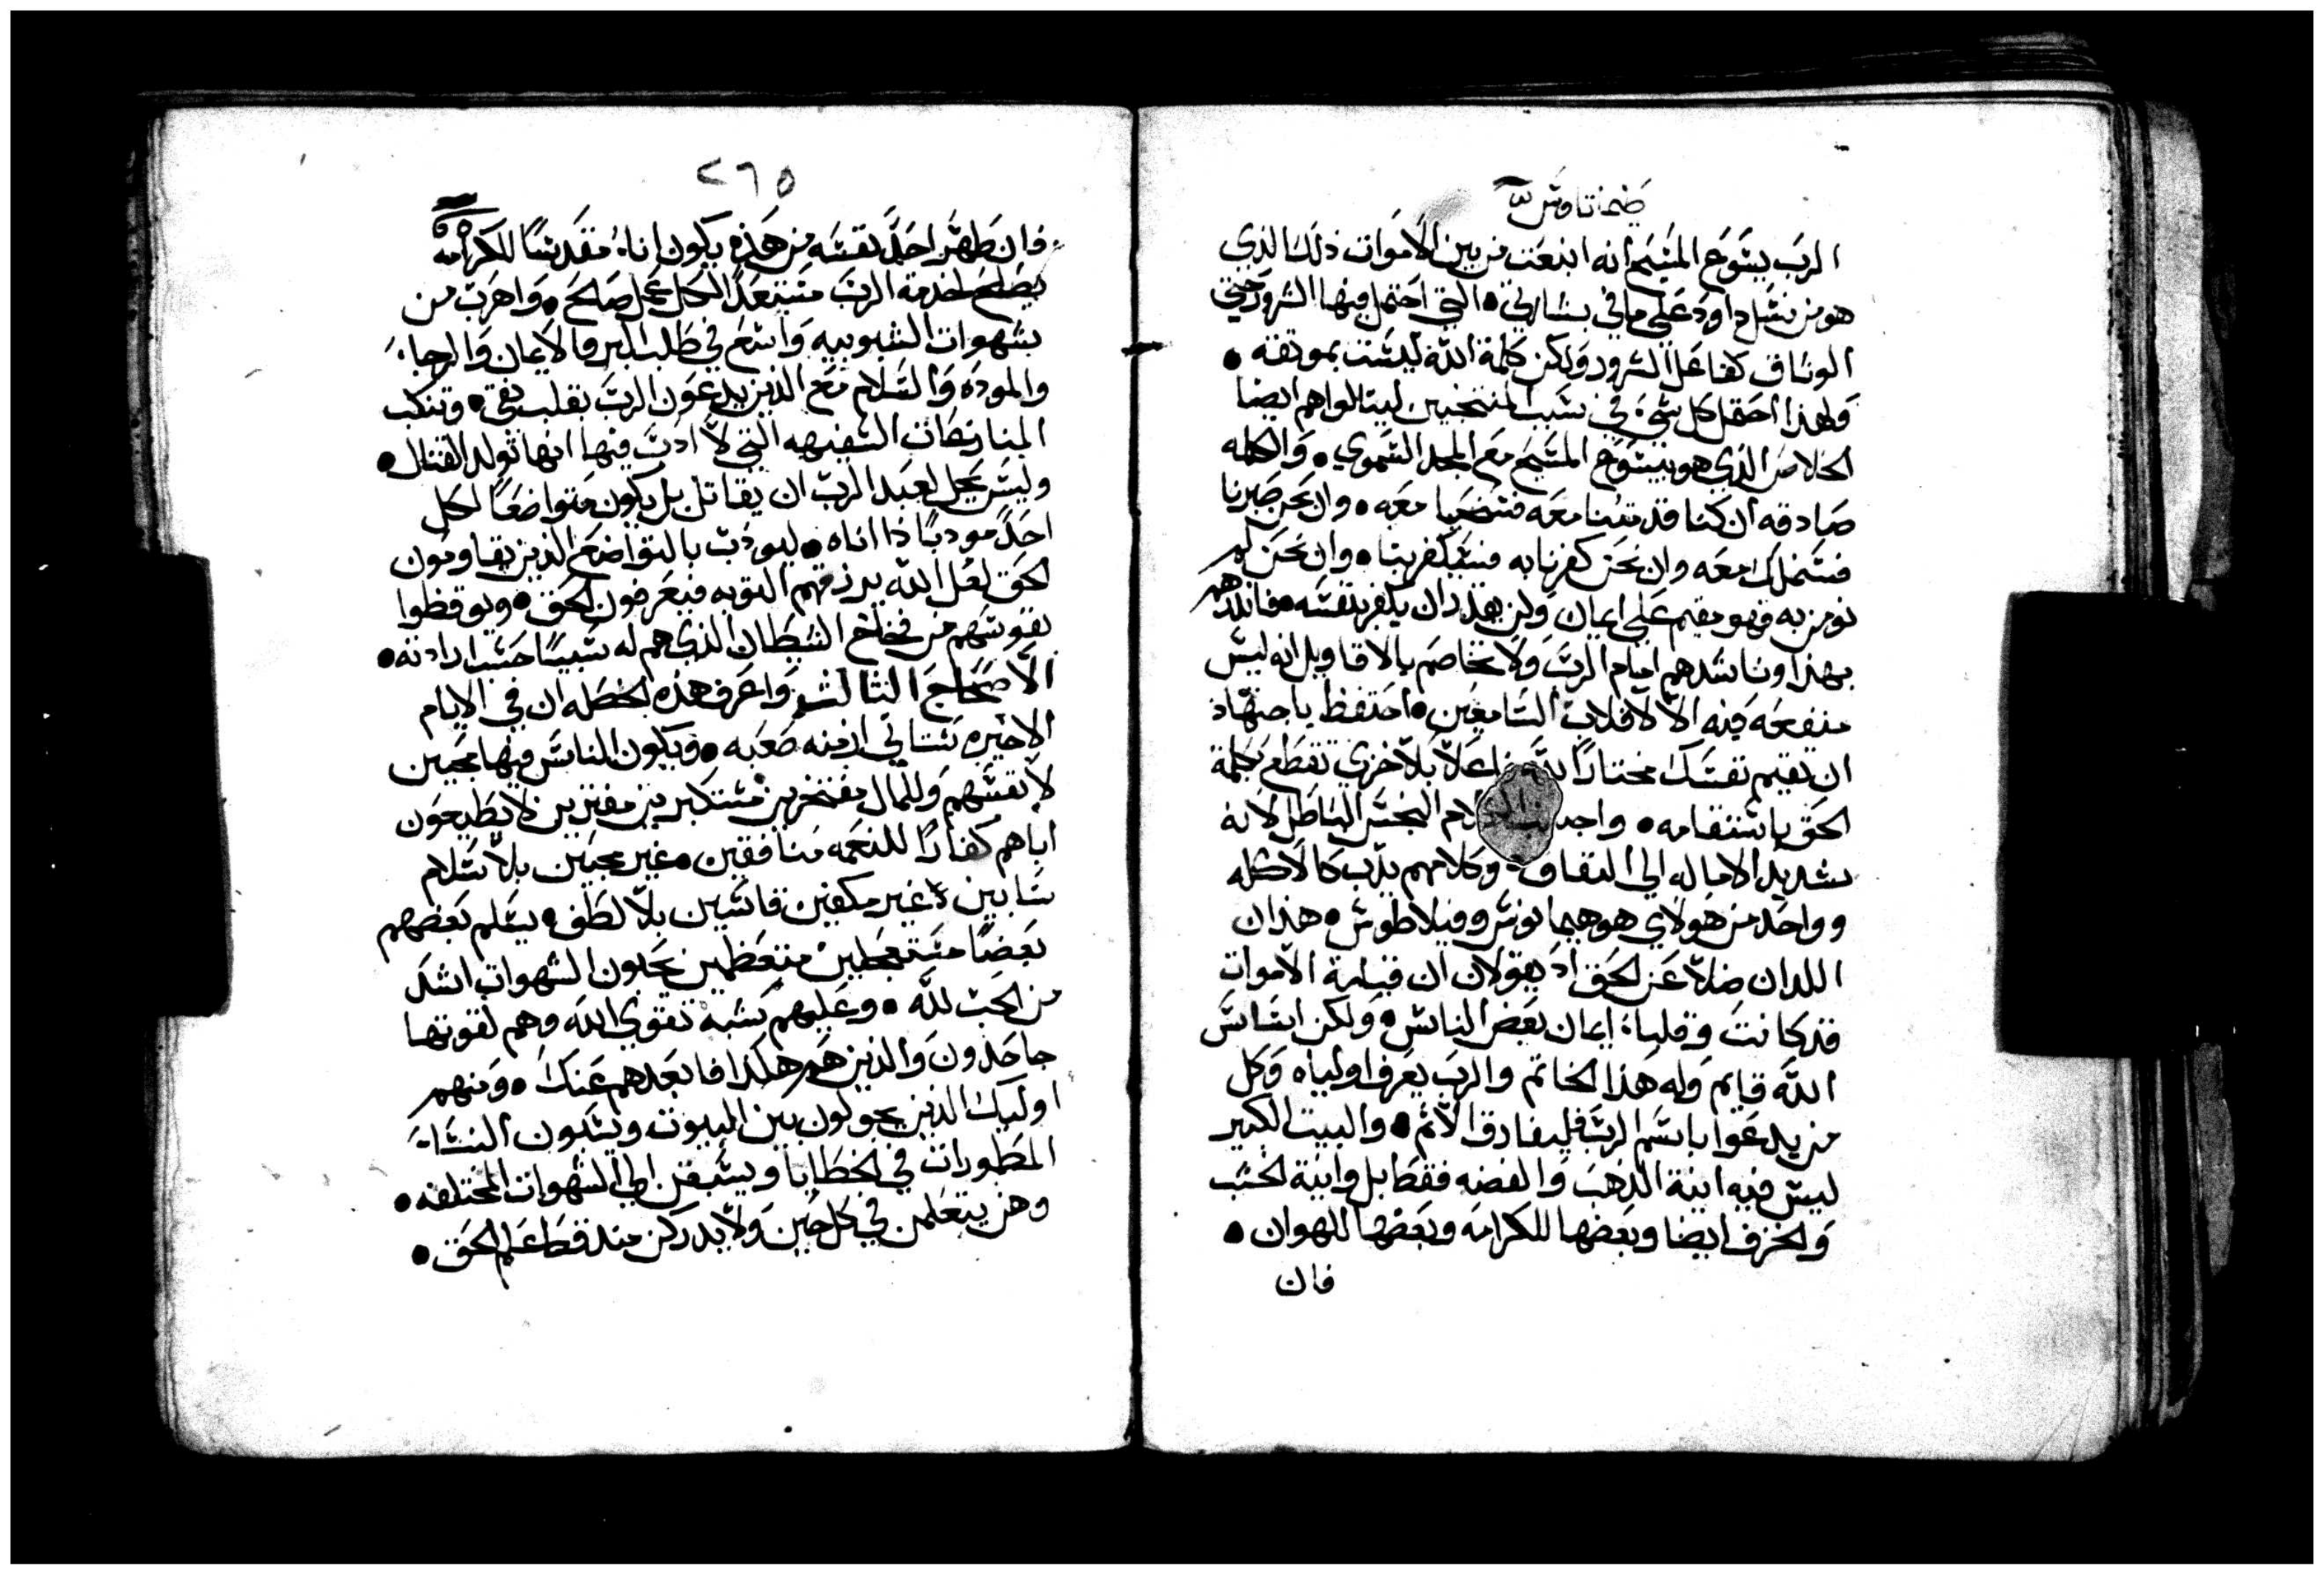 طيماتاوس
الرب يسوع المسيح انه انبعث من بين الاموات ذلك الذي
هو من نسل داود على ما في بشارتي • التي احتمل فيها الشرور حتي
الوثاق كفاعل الشرور ولكن كلمة الله ليست بموثقه •
ولهذا احتمل كل شيء في سبب المنتخبين لينالوا هم ايضا
الخلاص الذي هو بيسوع المسيح مع المجد السموي • والكلمه
صادقه ان كنا قد متنا معه فسنحيا معه • وان نحن صبرنا
فسنملك معه وان نحن كفرنا به فسيكفر بنا • وان نحن لم
نومن به فهو مقيم على ايمان ولن يقدر ان يكفر بنفسه • فانذرهم
بهذا وناشدهم امام الرب ولا تخاصم بالاقاويل انه ليس
منفعه فيه الا لافلاب السامعين • احتفظ باجتهاد
ان تقيم نفسك مختارًا لله فاعلا بلا خزي تقطع كلمة
الحق باستقامه • واجتنب الكلام النجس الباطل لانه
شديد الاماله الي النفاق • وكلامهم يدب كالاكله
وواحد من هولاي هو هيمانوس وفيلاطوس • هذان
اللدان ضلا عن الحق اذ يقولان ان قيامة الاموات
قد كانت وقلباء ايمان بعض الناس • ولكن اساس
الله قايم وله هذا الخاتم والرب يعرف اولياه وكل
من يدعوا باسم الرب فليفارق الاثم • والبيت الكبير
ليس فيه انية الذهب والفضه فقط بل وانية الخشب
والخزف ايضا وبعضها للكرامه وبعضها للهوان •
فان
٢٦٥
فان طهر احدٌ نفسه من هذه يكون اناءً مقدسًا للكرامه
يصلح لخدمة الرب مستعدًا لكل عمل صالح • واهرب من
شهوات الشبوبيه واسع في طلب البر والايمان والرجاء
والموده والسلام مع الذين يدعون الرب بقلب نقي • وتنكب
المنازعات السفيهه التي لا ادب فيها انها تولد القتال •
وليس يحل لعبد الرب ان يقاتل بل يكون متواضعًا لكل
احدٍ مودبًا ذا اناه • ليودب بالتواضع الذين يقاومون
الحق لعل الله يرزقهم التوبه فيعرفون الحق • ويوقظوا
نفوسهم من فخاخ الشيطان الذي هم له سبيًا حسب ارادته •
الاصحاح الثالث واعرف هذه الخصله ان في الايام
الاخيره ستاتي ازمنه صعبه • ويكون الناس فيها محبين
لانفسهم وللمال مفتخرين مستكبرين مفترين لا يطيعون
اباهم كفارًا للنعمه منافقين • غير محبين بلا سلام
سابين غير مكفين قاسيين بلا لطف • يسلم بعضهم
بعضًا مستعجلين متعظمين يحبون الشهوات اشد
من الحب لله • وعليهم شبه تقوي الله وهم لقوتها
جاحدون والذين هم هكدا فابعدهم عنك • ومنهم
اوليك الذين يجولون بين البيوت ويسبون النساء
المطمورات في الخطايا ويسبقن الي الشهوات المختلفه •
وهن يتعلمن في كل حين ولا يدركن منذ قط علم الحق •